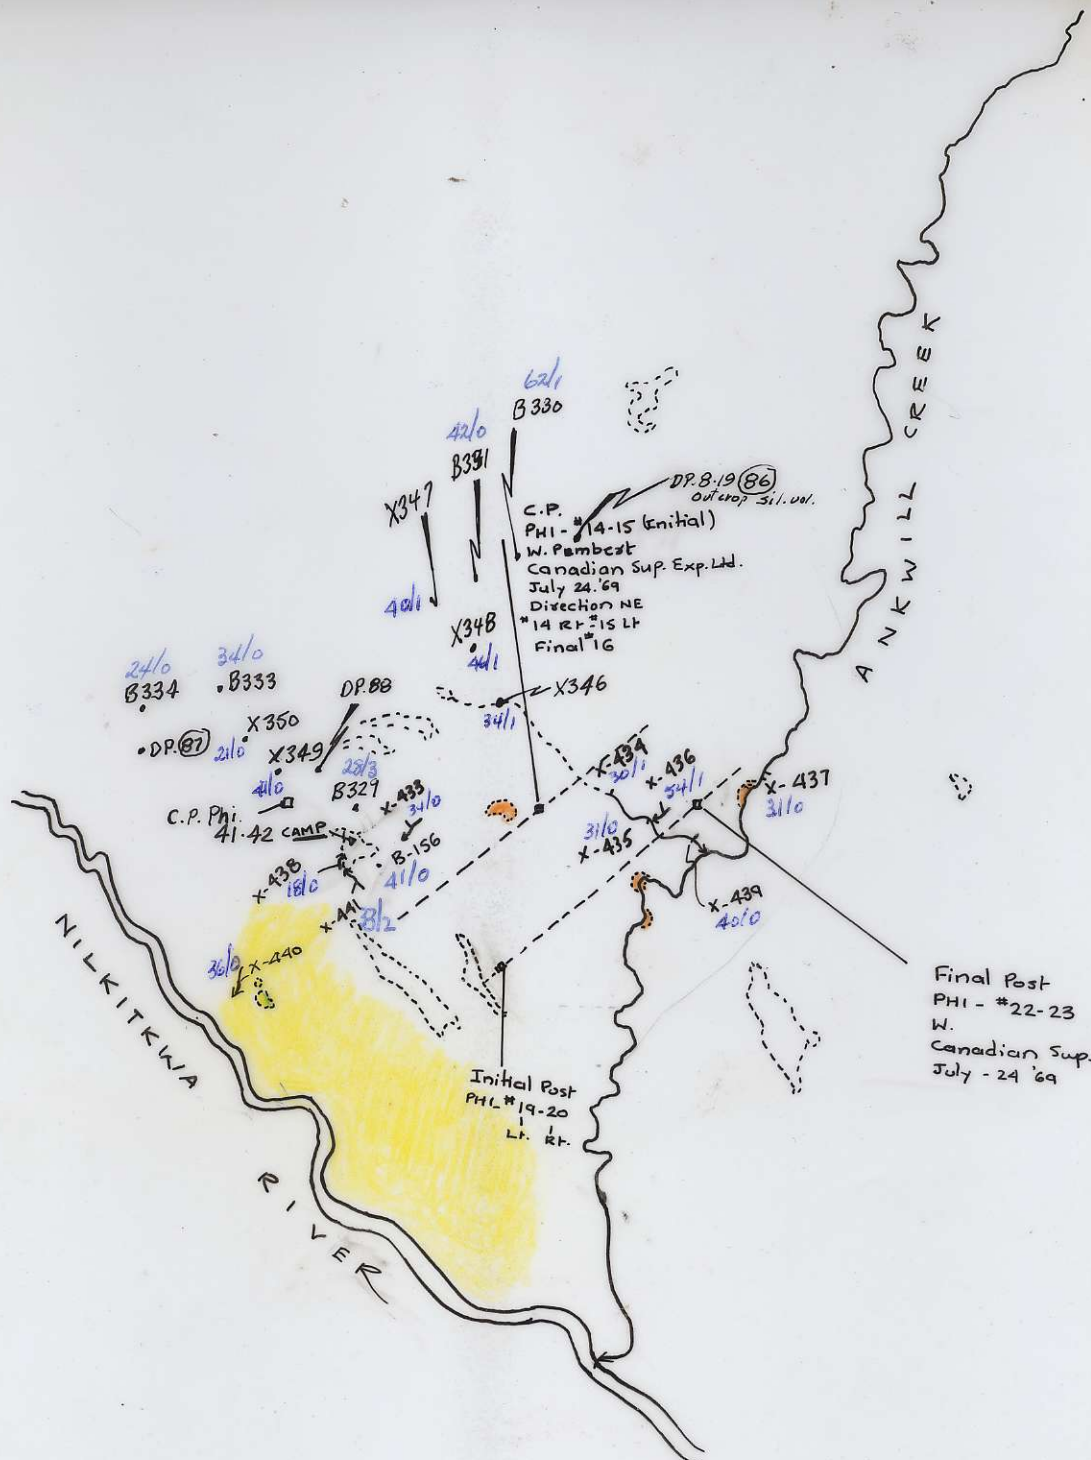 62/1
B330
42/0
B331
X347
40/1
DP.8-19 (86)
outcrop sil. vol.
C.P.
PHI - #14-15 (Initial)
W. Pembert
Canadian Sup. Exp. Ltd.
July 24.'69
Direction NE
#14 Rt #15 Lt
Final #16
X348
44/1
24/0
B334
34/0
B333
DP. 88
X346
34/1
DP. (87)
X350
21/0
X349
41/0
28/3
B329
C.P. Phi.
41-42 CAMP
X-433
34/0
B-156
41/0
X-438
18/0
X-441
38/2
36/0
X-440
X-434
30/1
X-436
54/1
X-437
31/0
31/0
X-435
X-439
40/0
ANKWILL CREEK
NILKITKWA RIVER
Initial Post
PHI - #19-20
Lt. Rt.
Final Post
PHI - #22-23
W.
Canadian Sup.
July - 24 '69